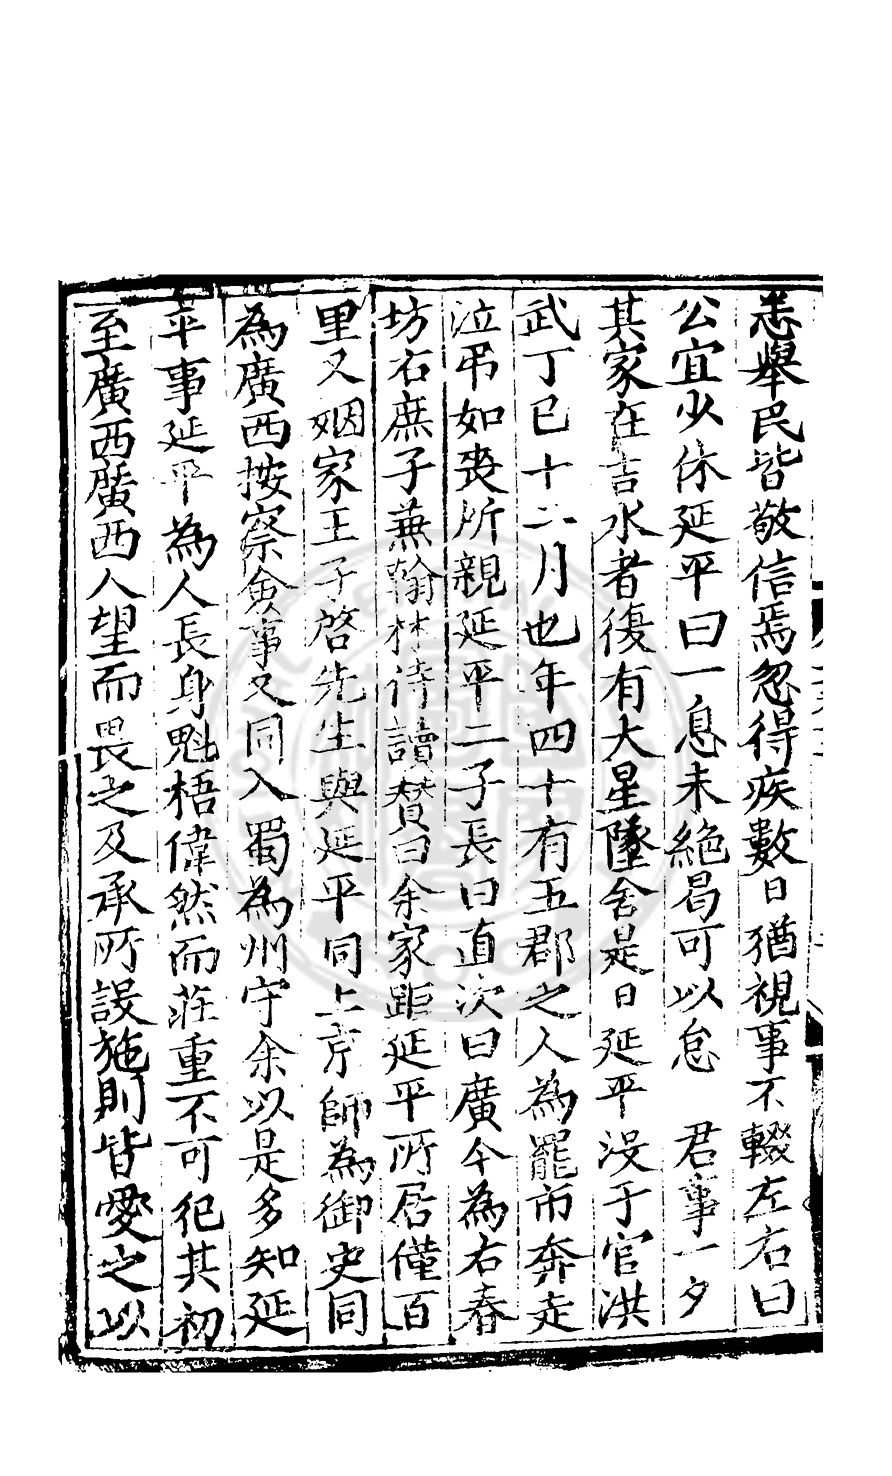 悉舉民皆敬信焉忽得疾數日猶視事不輟左右曰
公宜少休延平曰一息未絶曷可以怠　君事一夕
其家在吉水者復有大星墜舍是日延平没于官洪
武丁巳十二月也年四十有五郡之人為罷市奔走
泣吊如喪所親延平二子長曰直次曰廣今為右春
坊右庶子兼翰林侍讀贊曰余家距延平所居僅百
里又姻家王子啓先生與延平同上京師為御史同
為廣西按察僉事又同入蜀為州守余以是多知延
平事延平為人長身魁梧偉然而莊重不可犯其初
至廣西廣西人望而畏之及承所設施則皆愛之以